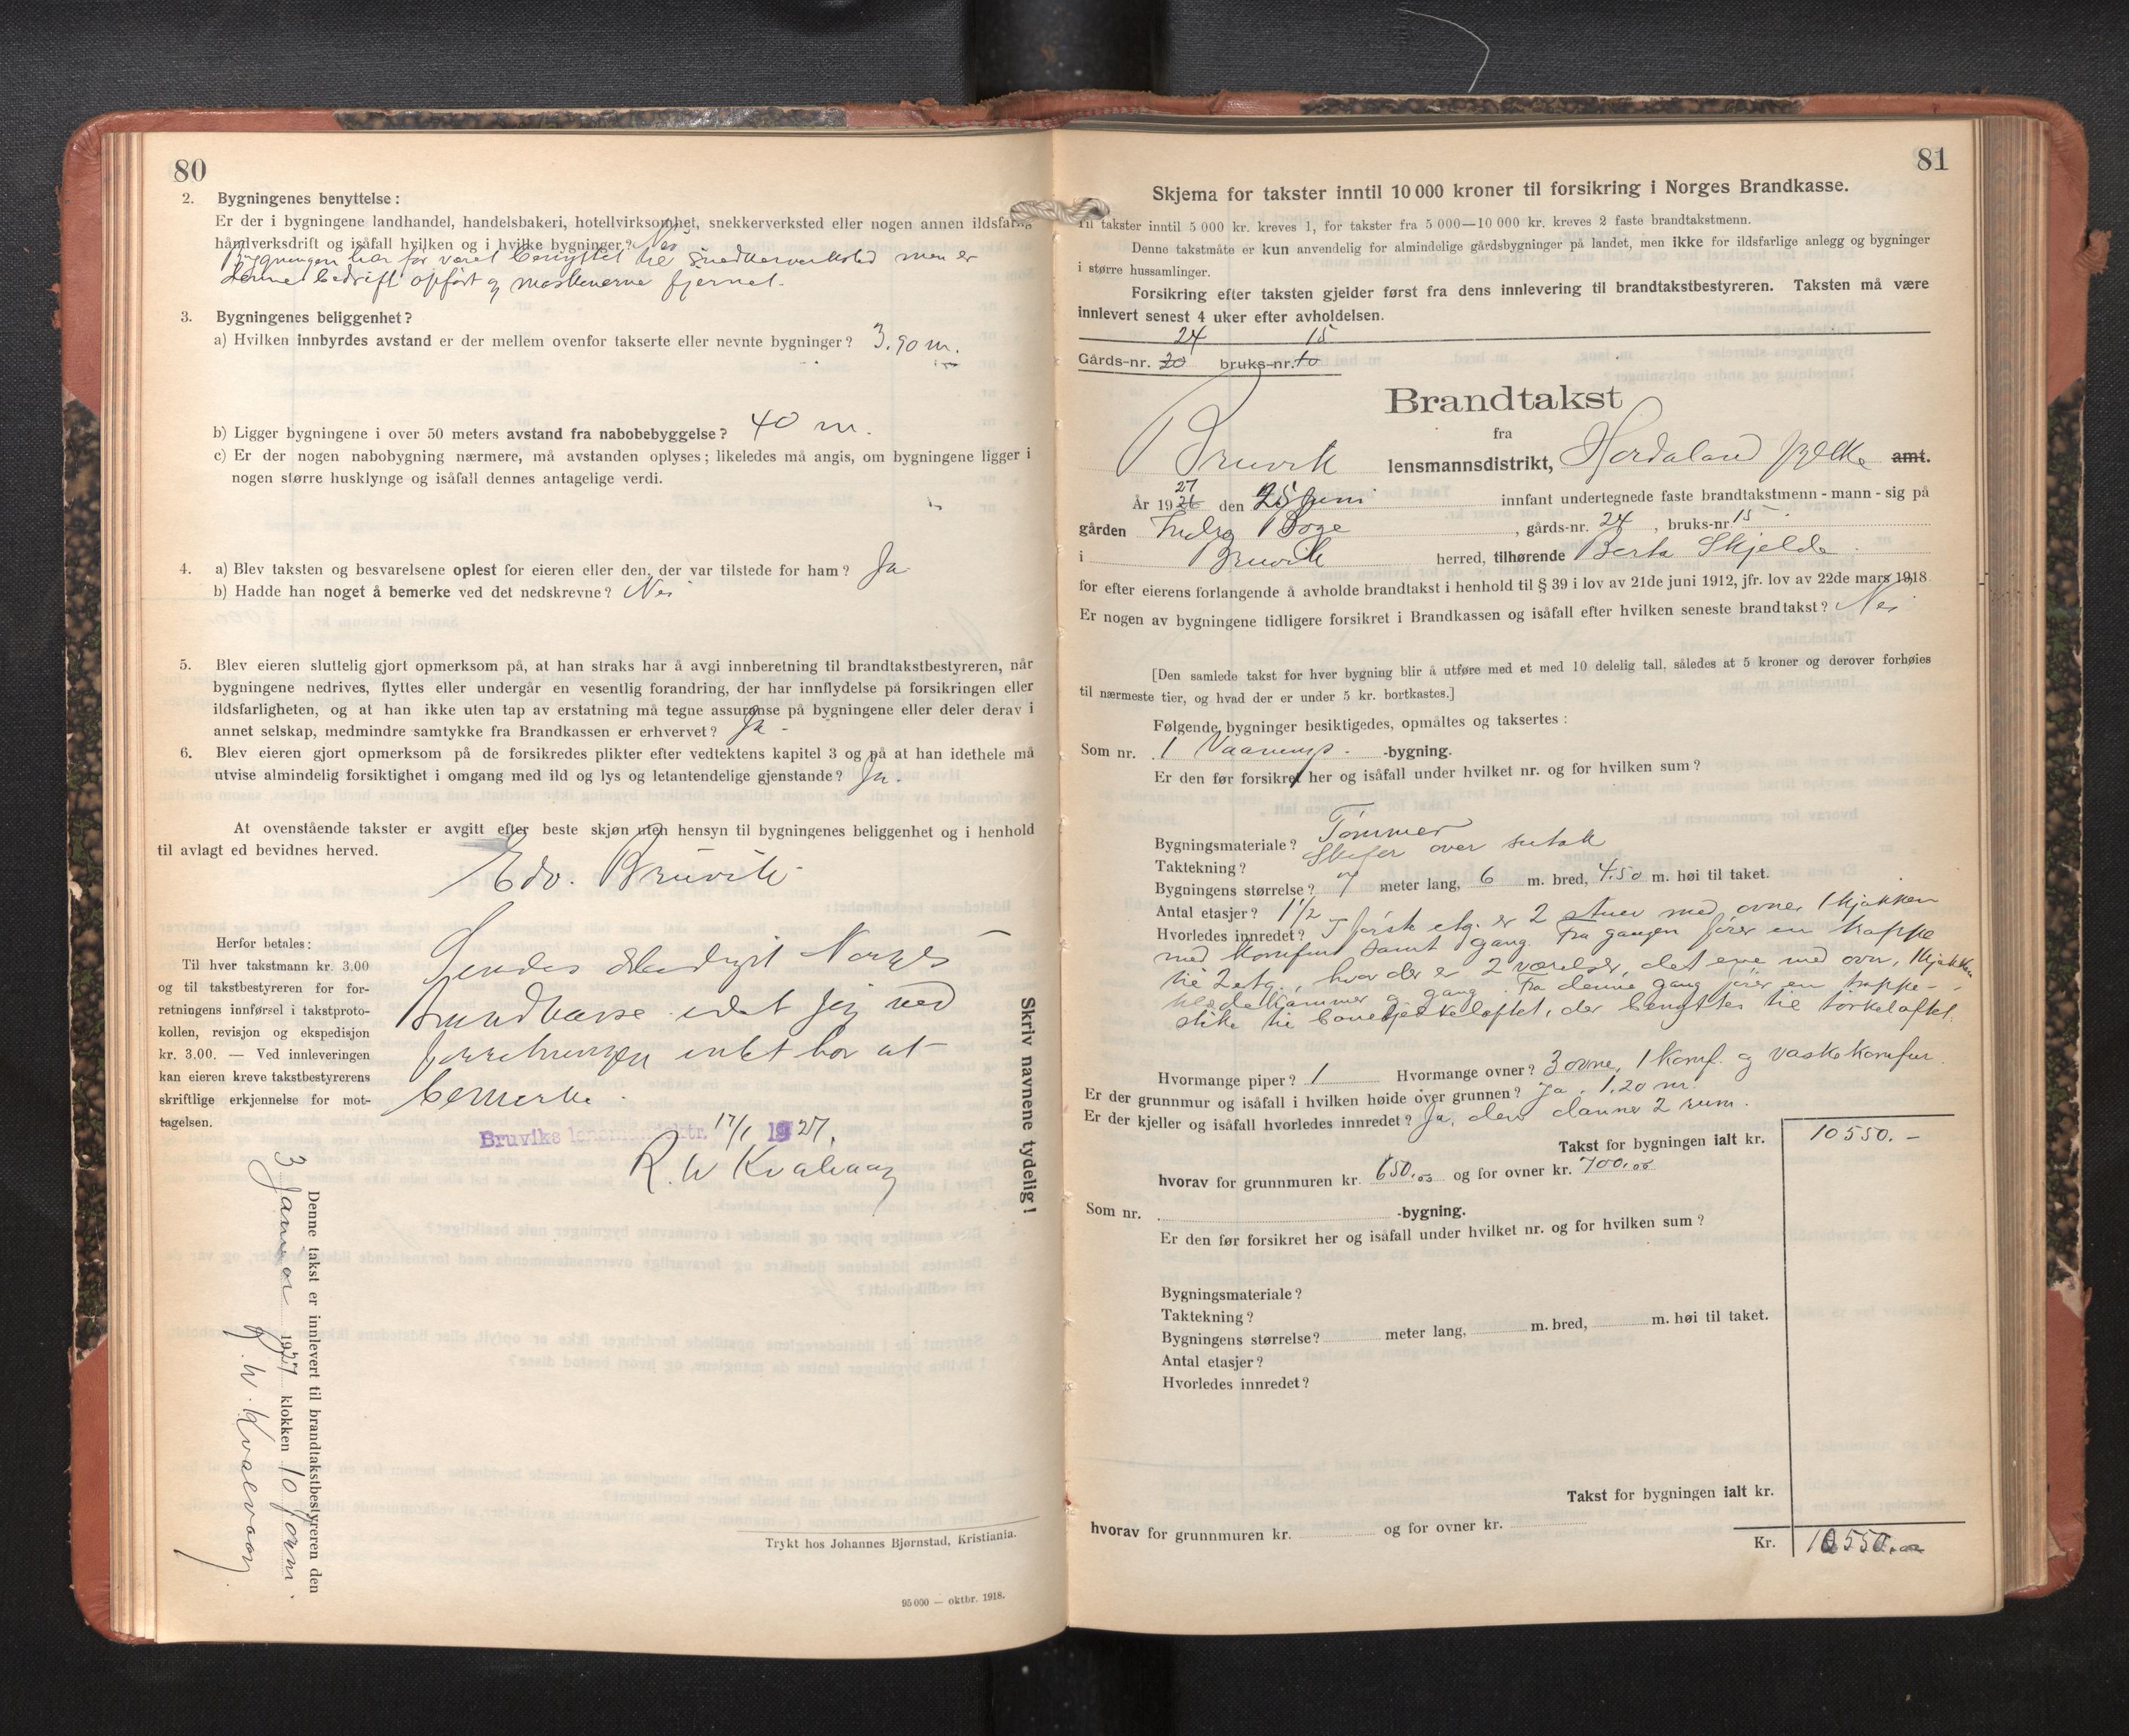 80
2. Bygningenes benyttelse:
Er der i bygningene landhandel, handelsbakeri, hotellvirksomhet, snekkerverksted eller nogen annen ildsfarlig
håndverksdrift og isåfall hvilken og i hvilke bygninger? Nei
Bygningen har før været benyttet til snedkerverksted men er
denne bedrift ophørt og maskinerne fjernet.
3. Bygningenes beliggenhet?
a) Hvilken innbyrdes avstand er der mellem ovenfor takserte eller nevnte bygninger? 3.90 m.
b) Ligger bygningene i over 50 meters avstand fra nabobebyggelse? 40 m.
c) Er der nogen nabobygning nærmere, må avstanden oplyses; likeledes må angis, om bygningene ligger i
nogen større husklynge og isåfall dennes antagelige verdi.
4. a) Blev taksten og besvarelsene oplest for eieren eller den, der var tilstede for ham? Ja
b) Hadde han noget å bemerke ved det nedskrevne? Nei
5. Blev eieren sluttelig gjort opmerksom på, at han straks har å avgi innberetning til brandtakstbestyreren, når
bygningene nedrives, flyttes eller undergår en vesentlig forandring, der har innflydelse på forsikringen eller
ildsfarligheten, og at han ikke uten tap av erstatning må tegne assuranse på bygningene eller deler derav i
annet selskap, medmindre samtykke fra Brandkassen er erhvervet? Ja -
6. Blev eieren gjort opmerksom på de forsikredes plikter efter vedtektens kapitel 3 og på at han idethele må
utvise almindelig forsiktighet i omgang med ild og lys og letantendelige gjenstande? Ja.
At ovenstående takster er avgitt efter beste skjøn uten hensyn til bygningenes beliggenhet og i henhold
til avlagt ed bevidnes herved.
Edv. Bruvik
Herfor betales:
Til hver takstmann kr. 3.00
og til takstbestyreren for for-
retningens innførsel i takstproto-
kollen, revisjon og ekspedisjon
kr. 3.00. — Ved innleveringen
kan eieren kreve takstbestyrerens
skriftlige erkjennelse for mot-
tagelsen.
Sendes Norges
Brandkasse idet jeg ved
forretningen intet har at
bemerke.
Bruviks lensmannsdistr. 17/1 1927.
R. W Kvalvaag
Skriv navnene tydelig!
Denne takst er innlevert til brandtakstbestyreren den
3 Januar 1927 klokken 10 form.
R. W. Kvalvaag
Trykt hos Johannes Bjørnstad, Kristiania.
95 000 — oktbr. 1918.
81
Skjema for takster inntil 10 000 kroner til forsikring i Norges Brandkasse.
Til takster inntil 5 000 kr. kreves 1, for takster fra 5 000—10 000 kr. kreves 2 faste brandtakstmenn.
Denne takstmåte er kun anvendelig for almindelige gårdsbygninger på landet, men ikke for ildsfarlige anlegg og bygninger
i større hussamlinger.
Forsikring efter taksten gjelder først fra dens innlevering til brandtakstbestyreren. Taksten må være
innlevert senest 4 uker efter avholdelsen.
24 15
Gårds-nr. 20 bruks-nr. 10
Brandtakst
fra
Bruvik lensmannsdistrikt, Hordaland fylke amt.
27
År 1926 den 25 Juni innfant undertegnede faste brandtakstmenn - mann - sig på
gården Indre Boge, gårds-nr. 24, bruks-nr. 15
i Bruvik herred, tilhørende Berta Skjelde.
for efter eierens forlangende å avholde brandtakst i henhold til § 39 i lov av 21de juni 1912, jfr. lov av 22de mars 1918
Er nogen av bygningene tidligere forsikret i Brandkassen og isåfall efter hvilken seneste brandtakst? Nei
[Den samlede takst for hver bygning blir å utføre med et med 10 delelig tall, således at 5 kroner og derover forhøies
til nærmeste tier, og hvad der er under 5 kr. bortkastes.]
Følgende bygninger besiktigedes, opmåltes og taksertes:
Som nr. 1 Vaanings- -bygning.
Er den før forsikret her og isåfall under hvilket nr. og for hvilken sum?
Bygningsmateriale? Tømmer
Taktekning? Skifer over sutak
Bygningens størrelse? 7 meter lang, 6 m. bred, 4.50 m. høi til taket.
Antal etasjer? 1½
Hvorledes innredet? I første etg. er 2 stuer med ovner 1 kjøkken
med komfur samt gang. Fra gangen fører en trappe
til 2 etg., hvor der er 2 værelser, det ene med ovn, 1 kjøkken
klædekammer og gang. Fra denne gang fører en trappe-
stike til loftet, der benyttes til tørkeloftet.
Hvormange piper? 1 Hvormange ovner? 3 ovne, 1 komf. og vaskekomfur.
Er der grunnmur og isåfall i hvilken høide over grunnen? Ja, 1.20 m.
Er der kjeller og isåfall hvorledes innredet? Ja, den danner 2 rum.
Takst for bygningen ialt kr. 10550.-
hvorav for grunnmuren kr. 650.00 og for ovner kr. 700.00
Som nr. -bygning.
Er den før forsikret her og isåfall under hvilket nr. og for hvilken sum?
Bygningsmateriale?
Taktekning?
Bygningens størrelse? meter lang, m. bred, m. høi til taket.
Antal etasjer?
Hvorledes innredet?
Takst for bygningen ialt kr.
hvorav for grunnmuren kr. og for ovner kr.
Kr. 10550.00